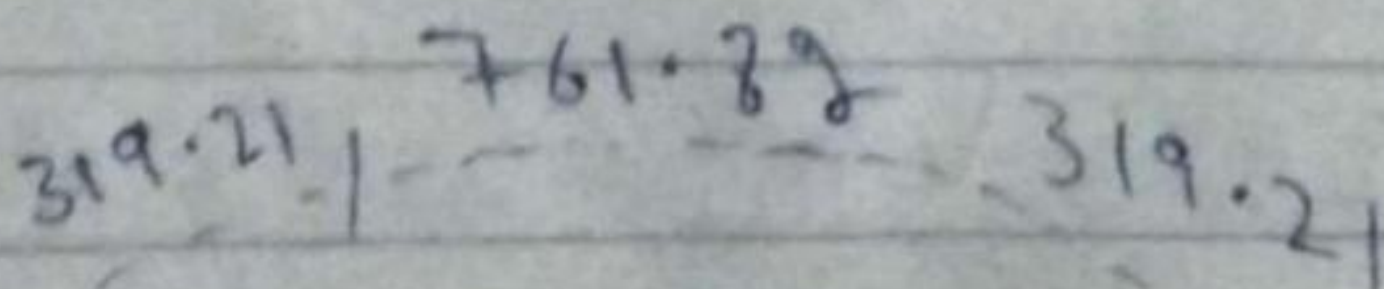 761.89
319.21
319.21